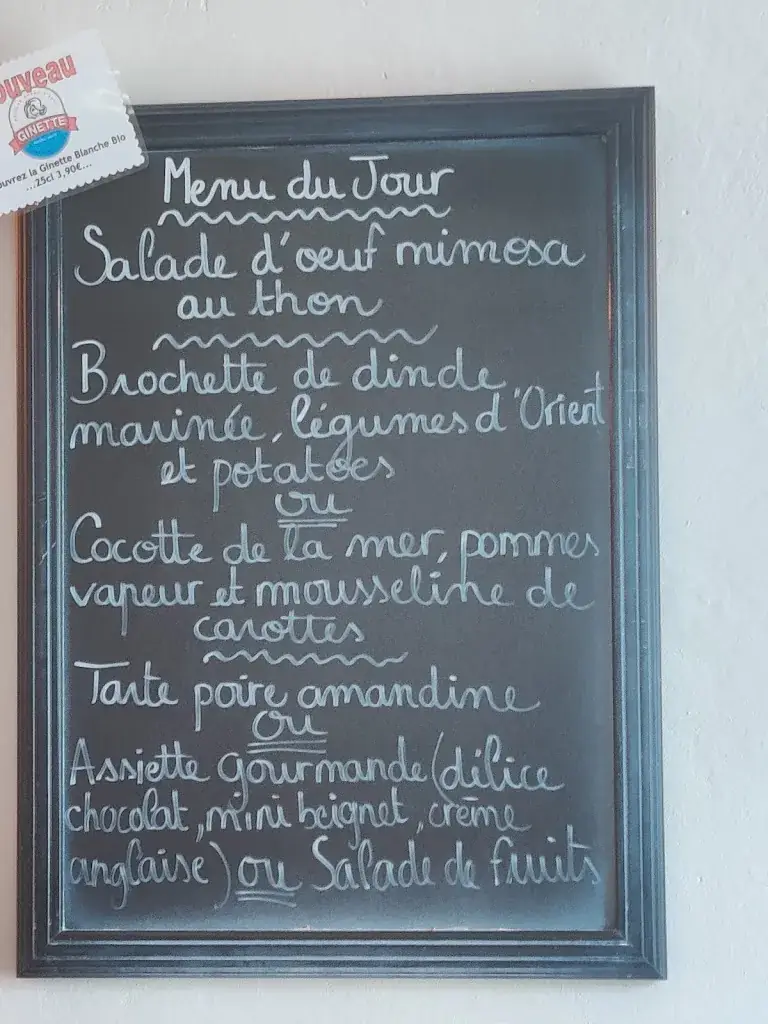 ouveau
GINETTE
ouvrez la Ginette Blanche Bio
...25cl 3,90€...
Menu du Jour
Salade d'oeuf mimosa
au thon
Brochette de dinde
marinée, légumes d'Orient
et potatoes
ou
Cocotte de la mer, pommes
vapeur et mousseline de
carottes
Tarte poire amandine
ou
Assiette gourmande (délice
chocolat, mini beignet, crème
anglaise) ou Salade de fruits